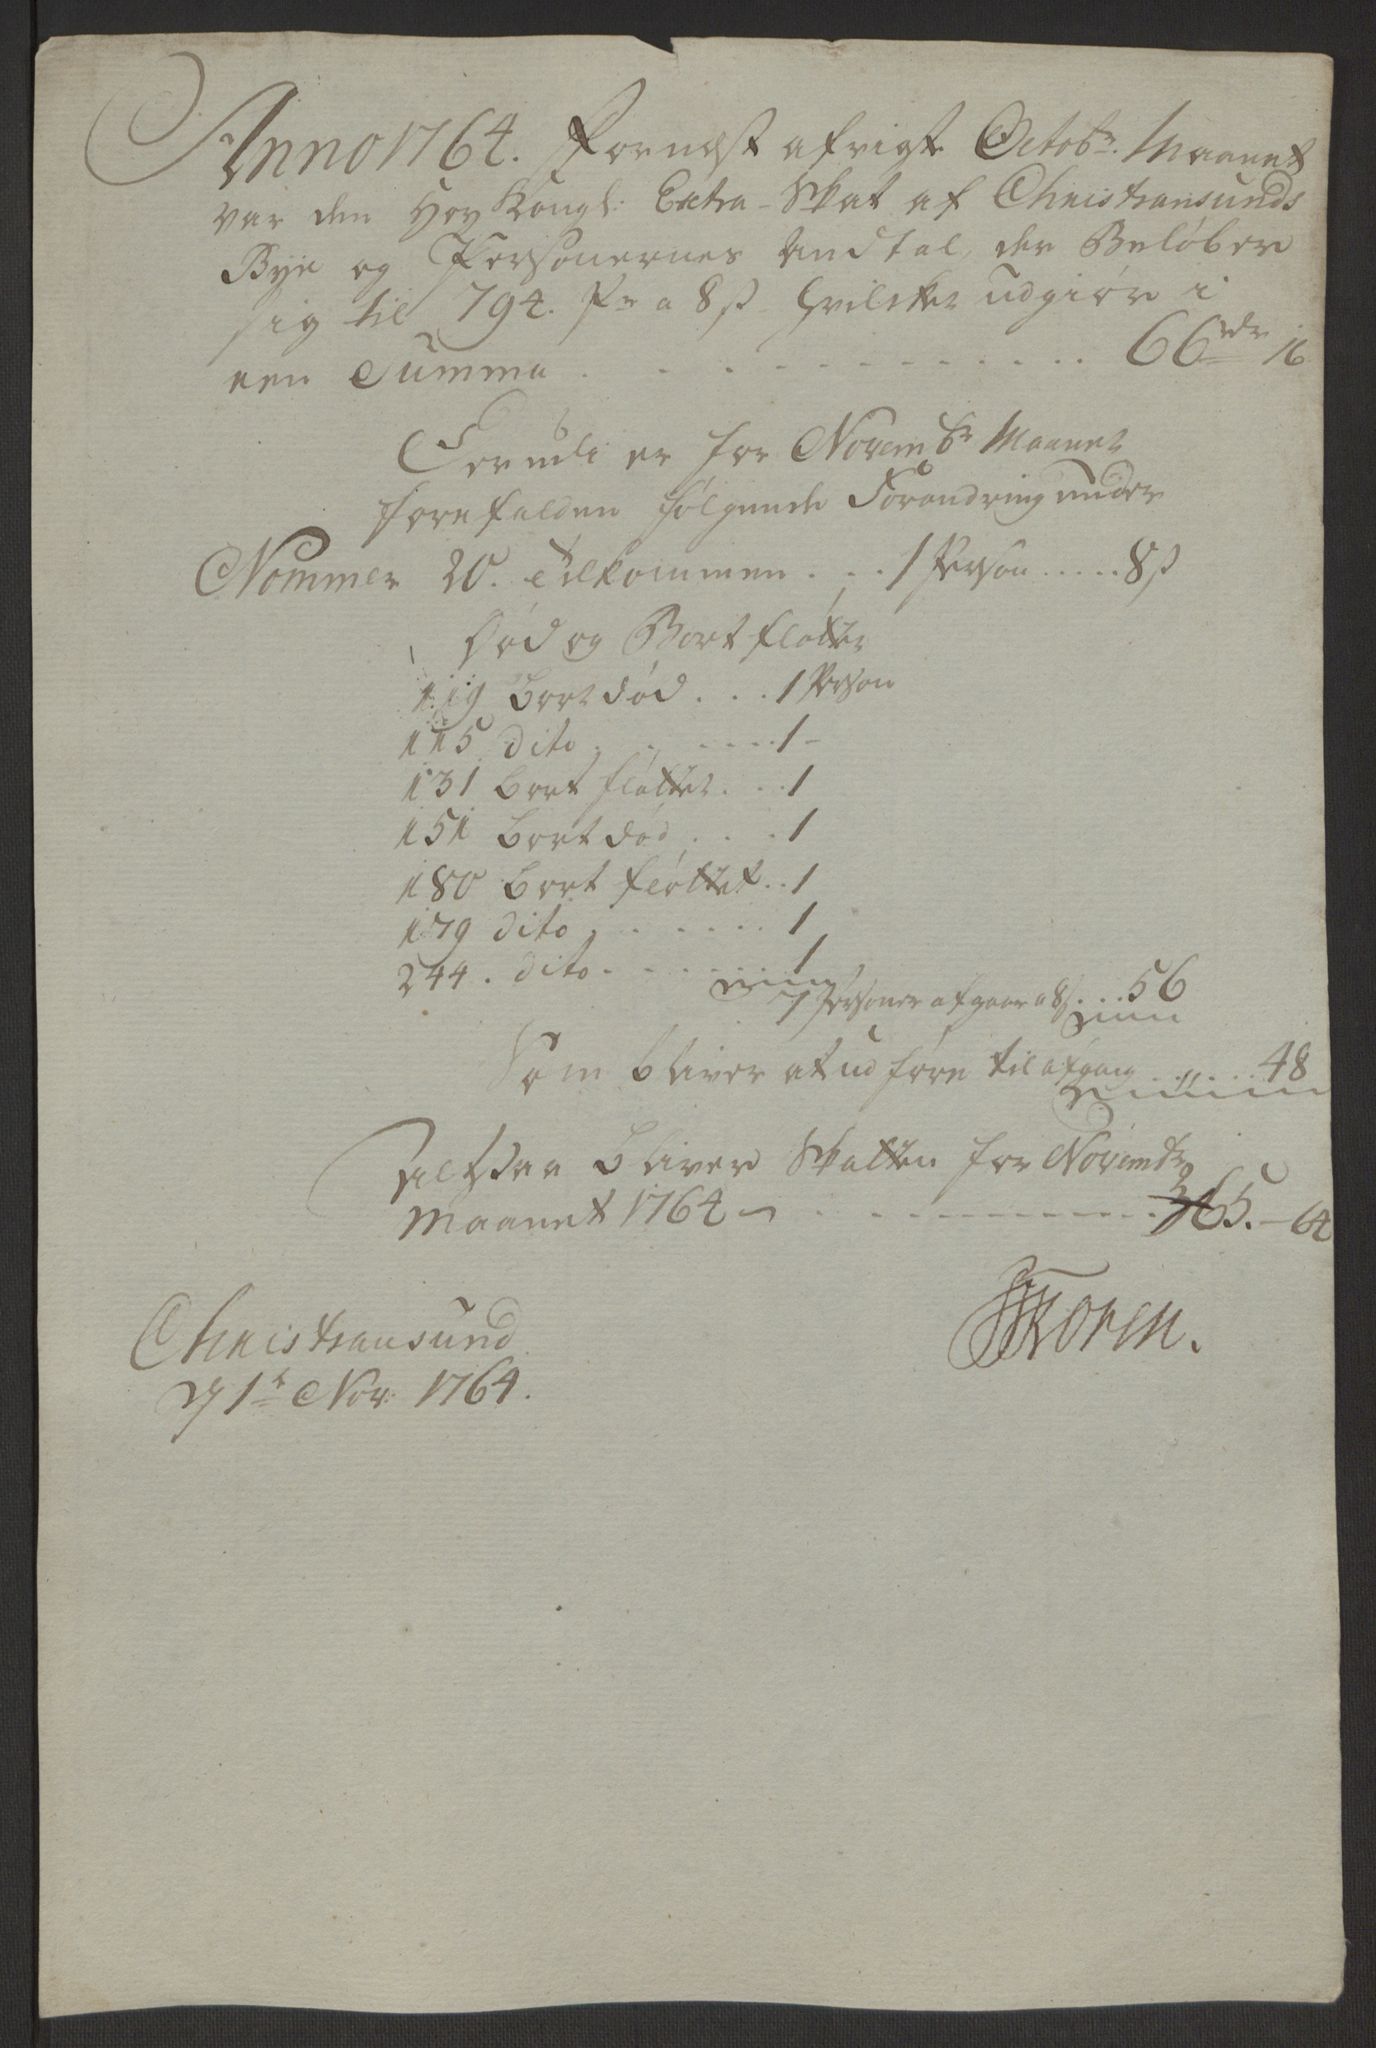 Anno 1764. Fornest afvigte Octobr. Maanet
var den Høy Kongl: Extra-Skat af Christiansunds
Bye og Personernes Andtal, der Beløber
sig til 794. Pr a 8 s hvilcket udgiør i
een Summa . . . . . . . . . . . 66 rdr 16
er for Novembr Maanet
forefalden følgende Forandring under
Nommer 20. tilkommen . . . 1 Person ..... 8 s
Død og Bortfløttet
119 bortdød . . . 1 Person
115 dito . . . . . . . 1 -
131 bort fløttet . . . 1
151 bort død . . . . 1
180 bort fløttet . . 1
179 dito . . . . . . . 1
244 . dito . . . . . . . 1
7 Personer afgaar a 8 s . . . 56
Som bliver at udføre til afgang . . . . . . . 48
altsaa bliver Skatten for Novembr
Maanet 1764 . . . . . . . . . . . 65. - 64
Christiansund
d 1te Nov: 1764.
Koren.